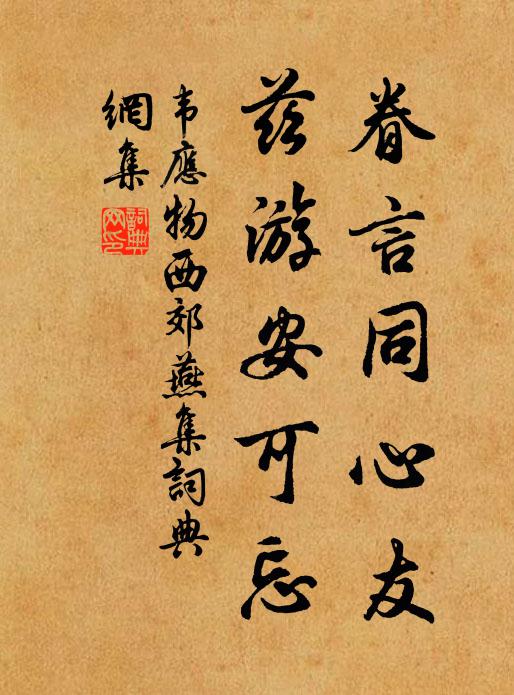 眷言同心友
茲游安可忘
韦應物西郊燕集詞典
網集
詞典網印